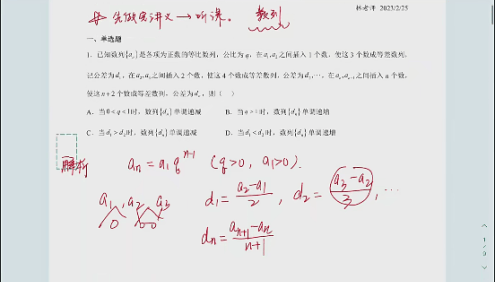 先做完讲义→听课。 数列
林老师 2023/2/25
一、单选题
1. 已知数列{aₙ}是各项为正数的等比数列，公比为 q，在 a₁,a₂ 之间插入 1 个数，使这 3 个数成等差数列，
记公差为 d₁，在 a₂,a₃ 之间插入 2 个数，使这 4 个数成等差数列，公差为 d₂,…，在 aₙ,aₙ₊₁ 之间插入 n 个数，
使这 n+2 个数成等差数列，公差为 dₙ，则（ ）
A．当 0<q<1 时，数列{dₙ}单调递减 B．当 q>1 时，数列{dₙ}单调递增
C．当 d₁>d₂ 时，数列{dₙ}单调递减 D．当 d₁<d₂ 时，数列{dₙ}单调递增
解析 aₙ = a₁qⁿ⁻¹ (q>0, a₁>0).
a₁, a₂ a₃ d₁ = (a₂-a₁)/2, d₂ = (a₃-a₂)/3, …
dₙ = (aₙ₊₁-aₙ)/(n+1)
1
/
9